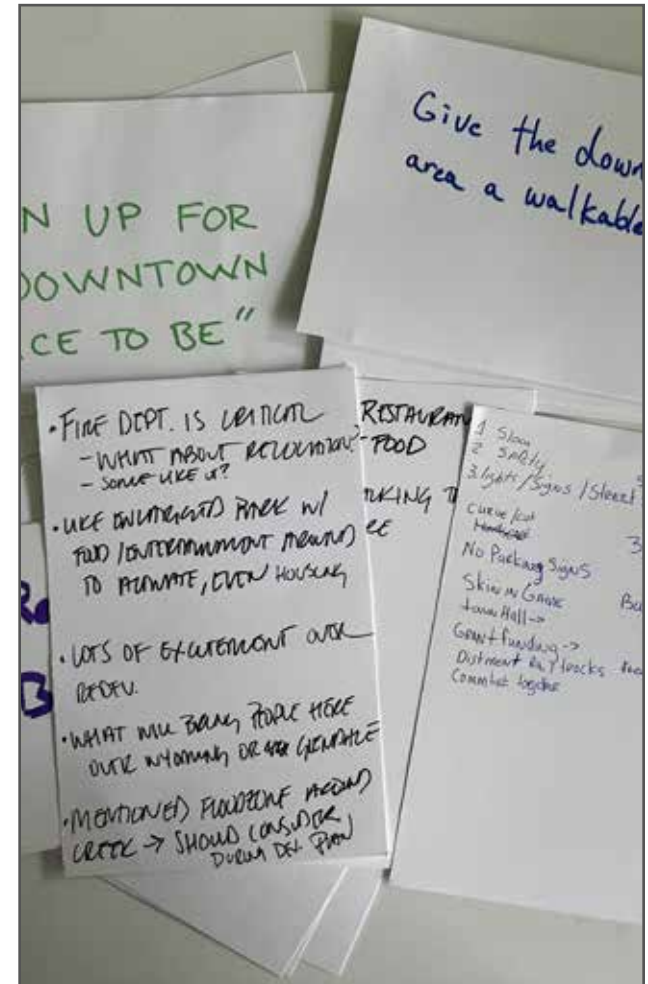 N UP FOR
DOWNTOWN
CE TO BE"
Give the down
area a walkable
• FIRE DEPT. IS CRITICAL
- WHAT ABOUT RELOCATION?
- SOME LIKE IT?
• LIKE ENLARGED PARK W/
FOOD/ENTERTAINMENT AROUND
TO ACTIVATE, EVEN HOUSING
• LOTS OF EXCITEMENT OVER
REDEV.
• WHAT WILL BRING PEOPLE HERE
OVER WYOMING OR GLENDALE
• MENTIONED FLOODZONE AROUND
CREEK → SHOULD CONSIDER
DURING DEV. PLAN
RESTAURAN
FOOD
KING T
RE
1 Slow
2 Safety
3. lights/Signs/Street
curve/cut
No Parking Signs
Skin in Game
town Hall →
Grant funding →